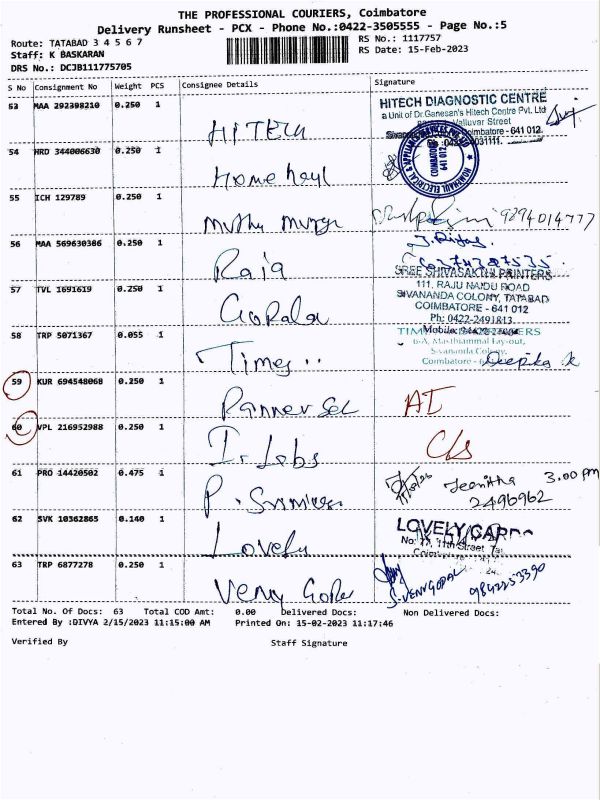 THE PROFESSIONAL COURIERS, Coimbatore
Delivery Runsheet - PCX - Phone No.:0422-3505555 - Page No.:5
Route: TATABAD 3 4 5 6 7
RS No.: 1117757
Staff: K BASKARAN
RS Date: 15-Feb-2023
DRS No.: DCJB111775705
S No Consignment No Weight PCS Consignee Details Signature
53 MAA 292398210 0.250 1
HITECH
HITECH DIAGNOSTIC CENTRE
a Unit of Dr.Ganesan's Hitech Centre Pvt. Ltd
Valluvar Street
Coimbatore - 641 012.
54 HRD 344006630 0.250 1
COIMBATORE
641 012
55 ICH 129789 0.250 1
9894014777
56 MAA 569630386 0.250 1
Raja
57 TVL 1691619 0.250 1
Gopala
SREE SHIVASAKTHI PRINTERS
111, RAJU NAIDU ROAD
SIVANANDA COLONY, TATABAD
COIMBATORE - 641 012
Ph: 0422-2491813.
58 TRP 5071367 0.055 1
Times ..
6-A, Masthiammal Lay-out,
Sivananda Colony,
Coimbatore - 6
Deepika k
59 KUR 694548068 0.250 1
Panner Sel
60 VPL 216952988 0.250 1
61 PRO 14420502 0.475 1
3.00 pm
2496962
62 SVK 10362865 0.140 1
Lovely
LOVELY CARD
11th Street
63 TRP 6877278 0.250 1
Venu Gopal
S. VENUGOPAL
9842253390
Total No. Of Docs: 63 Total COD Amt: 0.00 Delivered Docs: Non Delivered Docs:
Entered By :DIVYA 2/15/2023 11:15:00 AM Printed On: 15-02-2023 11:17:46
Verified By Staff Signature